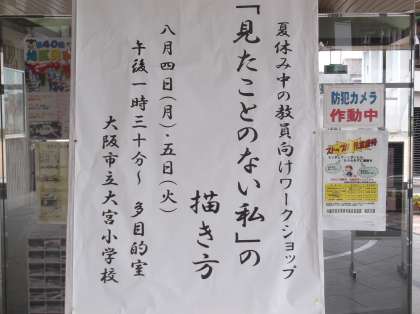 夏休み中の教員向けワークショップ
「見たことのない私」の
描き方
八月四日(月)・五日(火)
午後一時三十分〜 多目的室
大阪市立大宮小学校
防犯カメラ
作動中
ストップ!